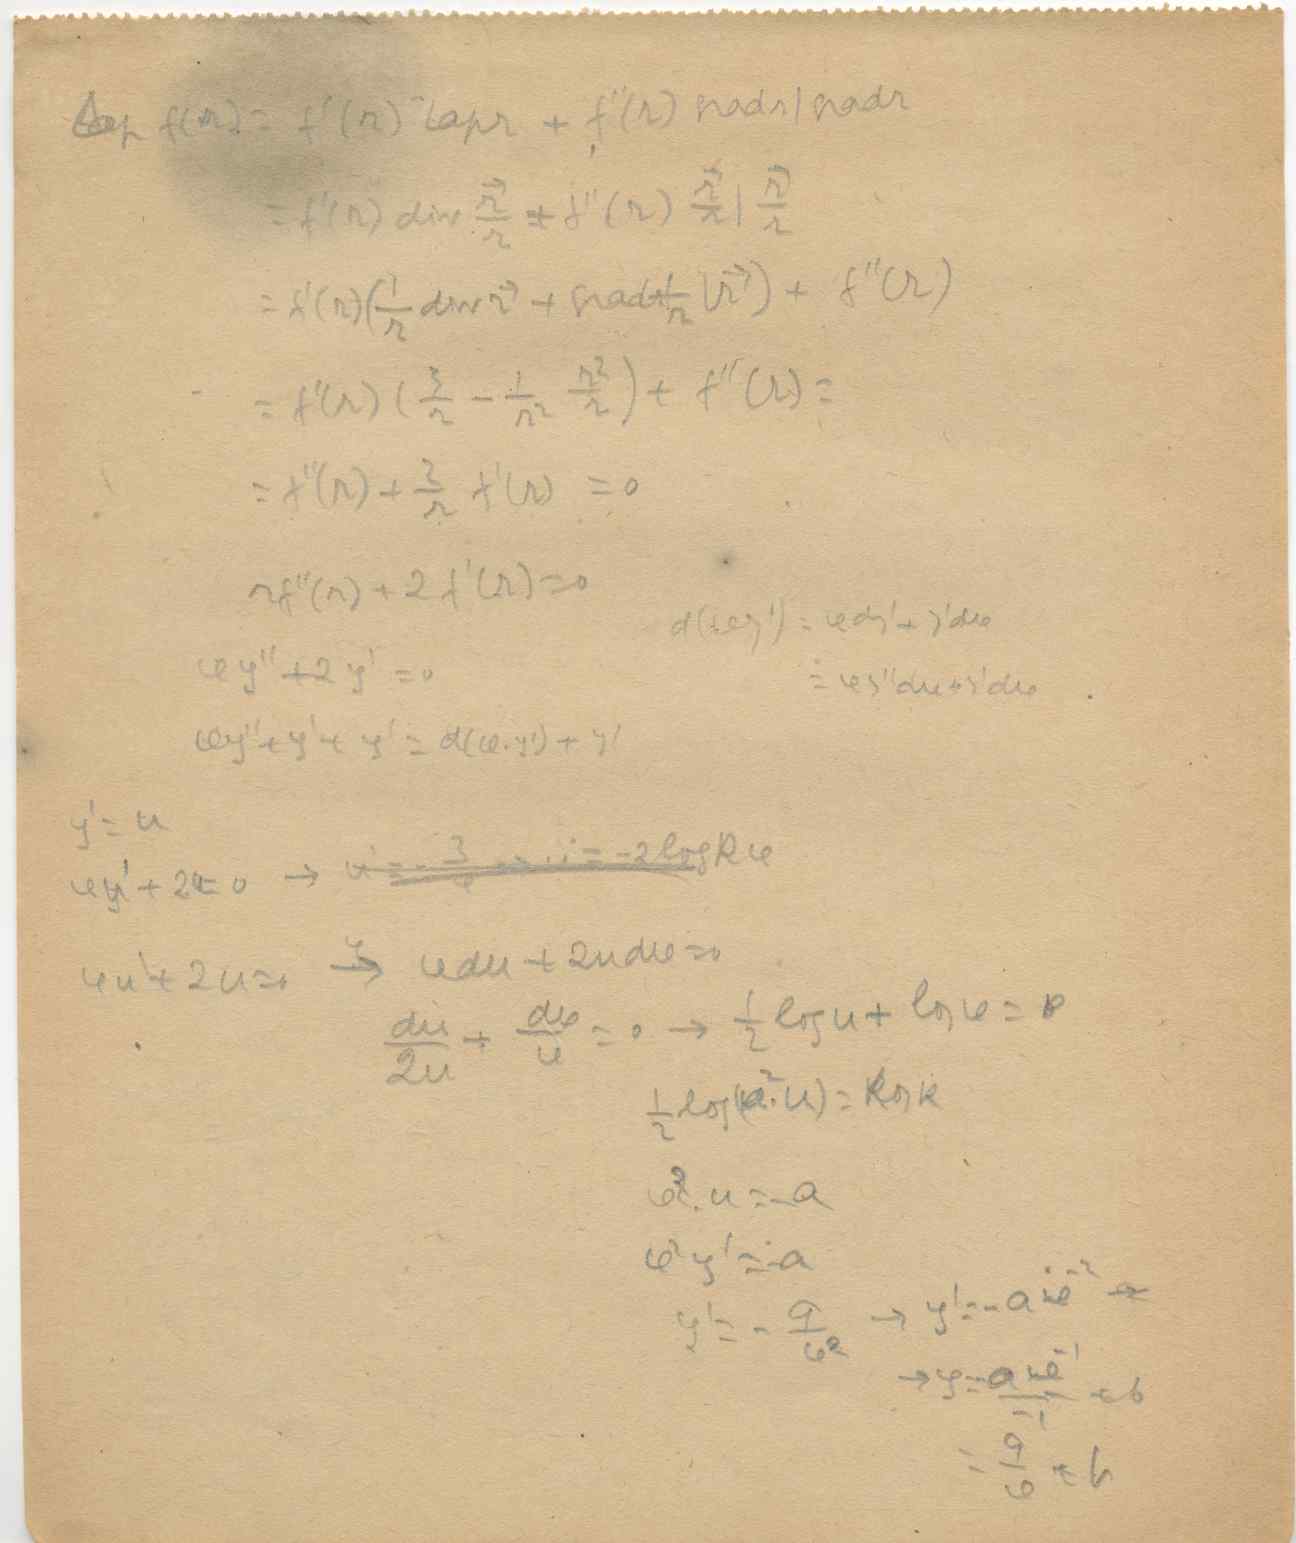 Lap f(r) = f'(r) lap r + f''(r) grad r | grad r
= f'(r) div r⃗/r + f''(r) r⃗/r | r⃗/r
= f'(r) (1/r div r⃗ + grad 1/r | r⃗) + f''(r)
= f'(r) (3/r - 1/r² r²/r) + f''(r) =
= f''(r) + 2/r f'(r) = 0
r f''(r) + 2 f'(r) = 0
d(x y') = x dy' + y' dx
x y'' + 2 y' = 0
= x y'' dx + y' dx
x y'' + y' + y' = d(x.y') + y'
y' = u
x u' + 2u = 0 →
x u' + 2u = 0 → x du + 2u dx = 0
du/2u + dx/x = 0 → 1/2 log u + log x = k
1/2 log(x².u) = log k
x².u = -a
x² y' = -a
y' = - a/x² → y' = -a x⁻²
→ y = -a x⁻¹/-1 + b
= a/x + b